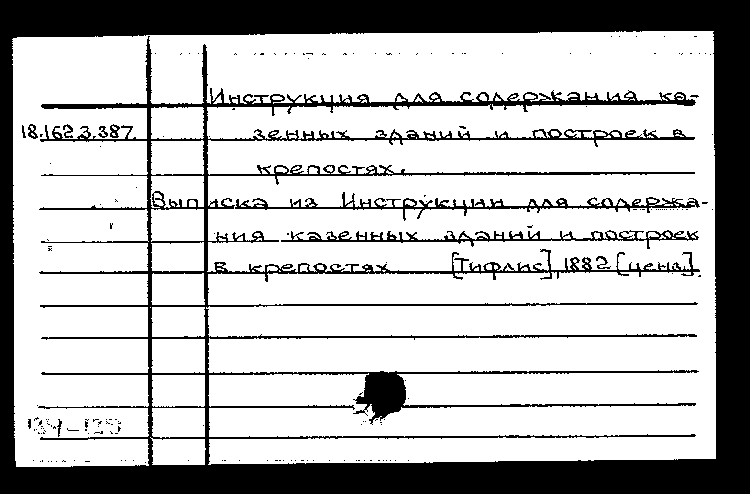 Инструкция для содержания ка-
18.162.3.387. зенных зданий и построек в
крепостях.
Выписка из Инструкции для содержа-
ния казенных зданий и построек
в крепостях [Тифлис], 1882 [цена].